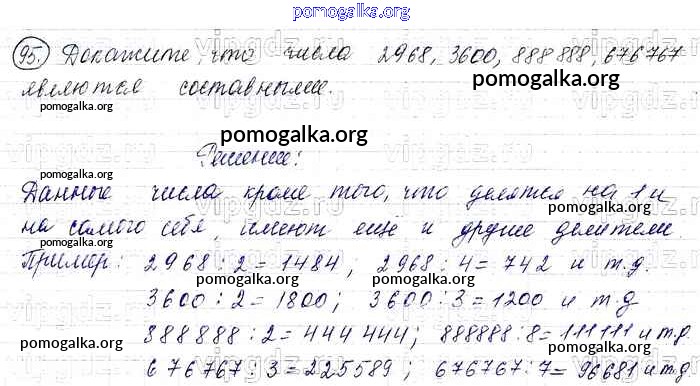 pomogalka.org
95. Докажите, что числа 2968, 3600, 888888, 676767
являются составными.
pomogalka.org
pomogalka.org
Решение:
Данные числа кроме того, что делятся на 1 и
pomogalka.org
на самого себя, имеют ещё и другие делители
pomogalka.org
Пример: 2968 : 2 = 1484; 2968 : 4 = 742 и т.д.
pomogalka.org
3600 : 2 = 1800; 3600 : 3 = 1200 и т.д
pomogalka.org
888888 : 2 = 444444; 888888 : 8 = 111111 и т.д.
676767 : 3 = 225589; 676767 : 7 = 96681 и т.д.
pomogalka.org